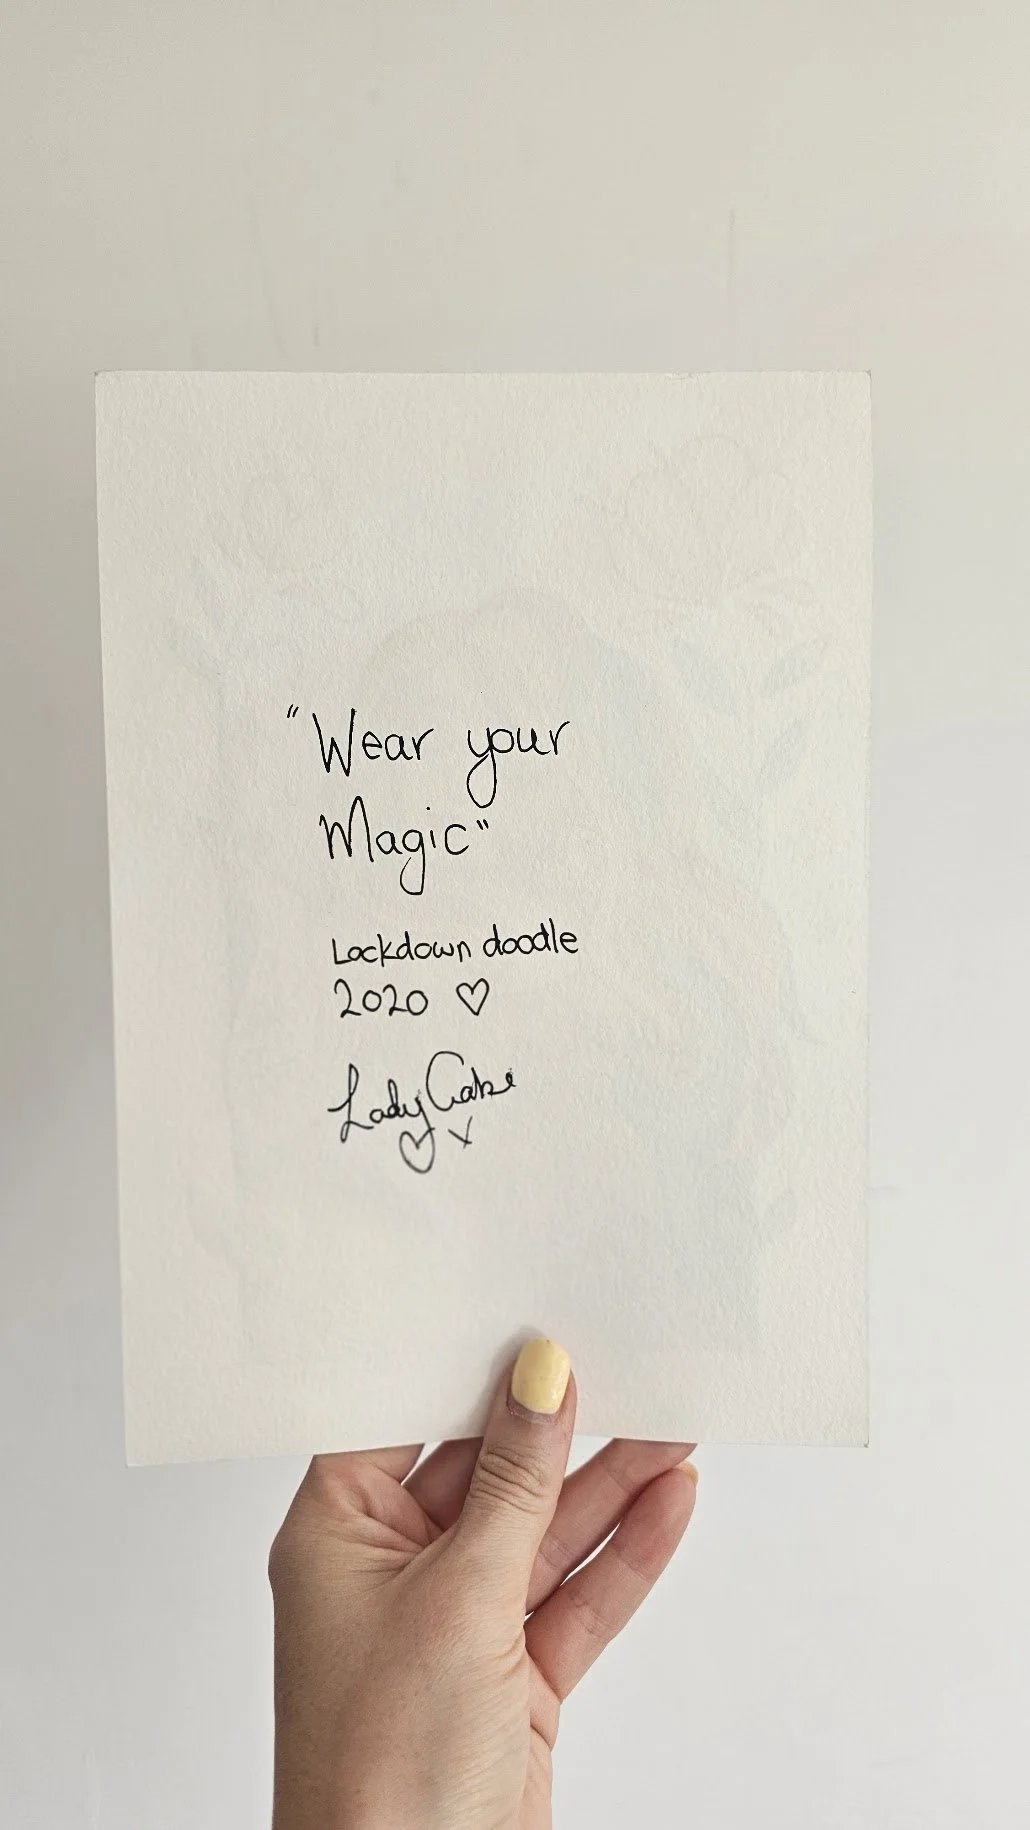 "Wear your
Magic"
Lockdown doodle
2020 ♡
Lady Cake
♡ x